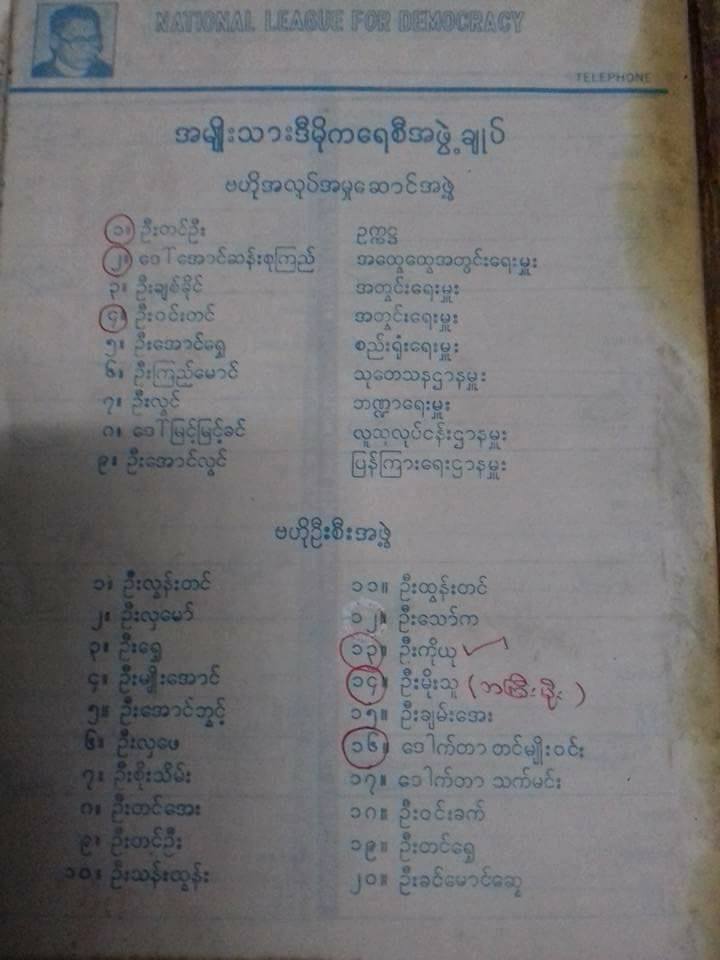 NATIONAL LEAGUE FOR DEMOCRACY
TELEPHONE
အမျိုးသားဒီမိုကရေစီအဖွဲ့ချုပ်
ဗဟိုအလုပ်အမှုဆောင်အဖွဲ့
၁။ ဦးတင်ဦး ဥက္ကဋ္ဌ
၂။ ဒေါ်အောင်ဆန်းစုကြည် အထွေထွေအတွင်းရေးမှူး
၃။ ဦးချစ်ခိုင် အတွင်းရေးမှူး
၄။ ဦးဝင်းတင် အတွင်းရေးမှူး
၅။ ဦးအောင်ရွှေ စည်းရုံးရေးမှူး
၆။ ဦးကြည်မောင် သုတေသနဌာနမှူး
၇။ ဦးလွင် ဘဏ္ဍာရေးမှူး
၈။ ဒေါ်မြင့်မြင့်ခင် လူထုလုပ်ငန်းဌာနမှူး
၉။ ဦးအောင်လွင် ပြန်ကြားရေးဌာနမှူး
ဗဟိုဦးစီးအဖွဲ့
၁။ ဦးလွန်းတင်
၂။ ဦးလှမော်
၃။ ဦးရွှေ
၄။ ဦးမျိုးအောင်
၅။ ဦးအောင်ဘွင့်
၆။ ဦးလှဖေ
၇။ ဦးစိုးသိမ်း
၈။ ဦးတင်အေး
၉။ ဦးတင်ဦး
၁၀။ ဦးသန်းထွန်း
၁၁။ ဦးထွန်းတင်
၁၂။ ဦးသော်က
၁၃။ ဦးကိုယု
၁၄။ ဦးမိုးသူ
၁၅။ ဦးချမ်းအေး
၁၆။ ဒေါက်တာ တင်မျိုးဝင်း
၁၇။ ဒေါက်တာ သက်မင်း
၁၈။ ဦးဝင်းခက်
၁၉။ ဦးတင်ရွှေ
၂၀။ ဦးခင်မောင်ဆွေ